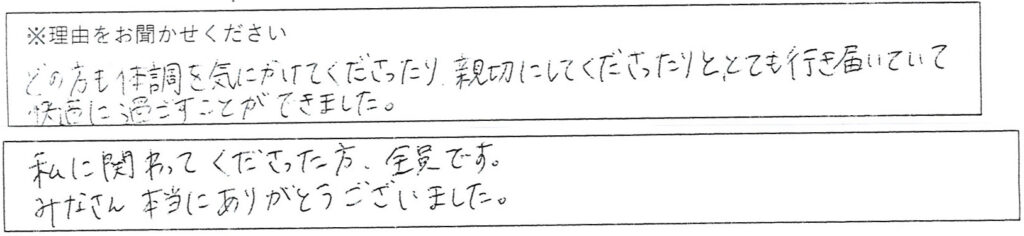 ※理由をお聞かせください
どの方も体調を気にかけてくださったり、親切にしてくださったりと、とても行き届いていて
快適に過ごすことができました。
私に関わってくださった方、全員です。
みなさん本当にありがとうございました。